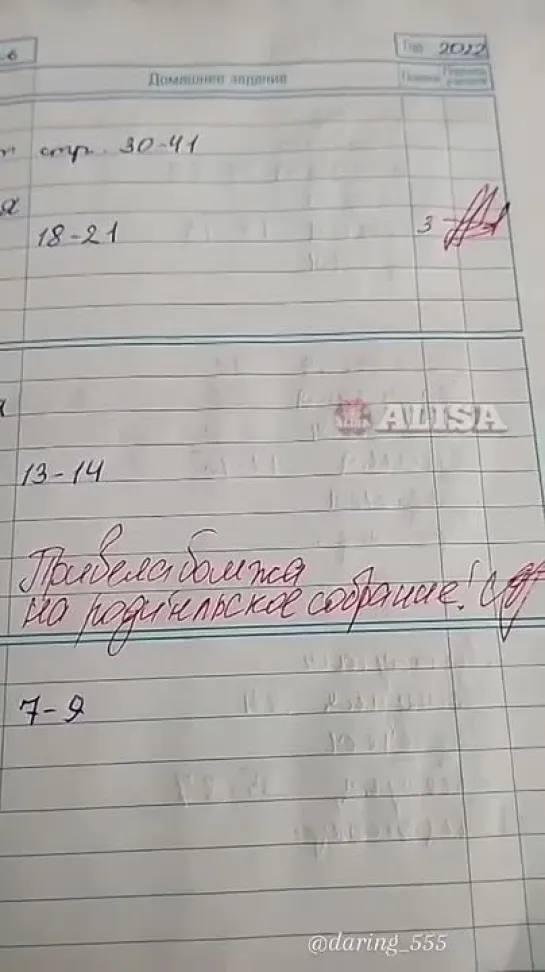 Год 2022
Домашнее задание
стр. 30-41
я
18-21
3
ALISA
13-14
Привела бомжа
на родительское собрание!
7-9
@daring_555